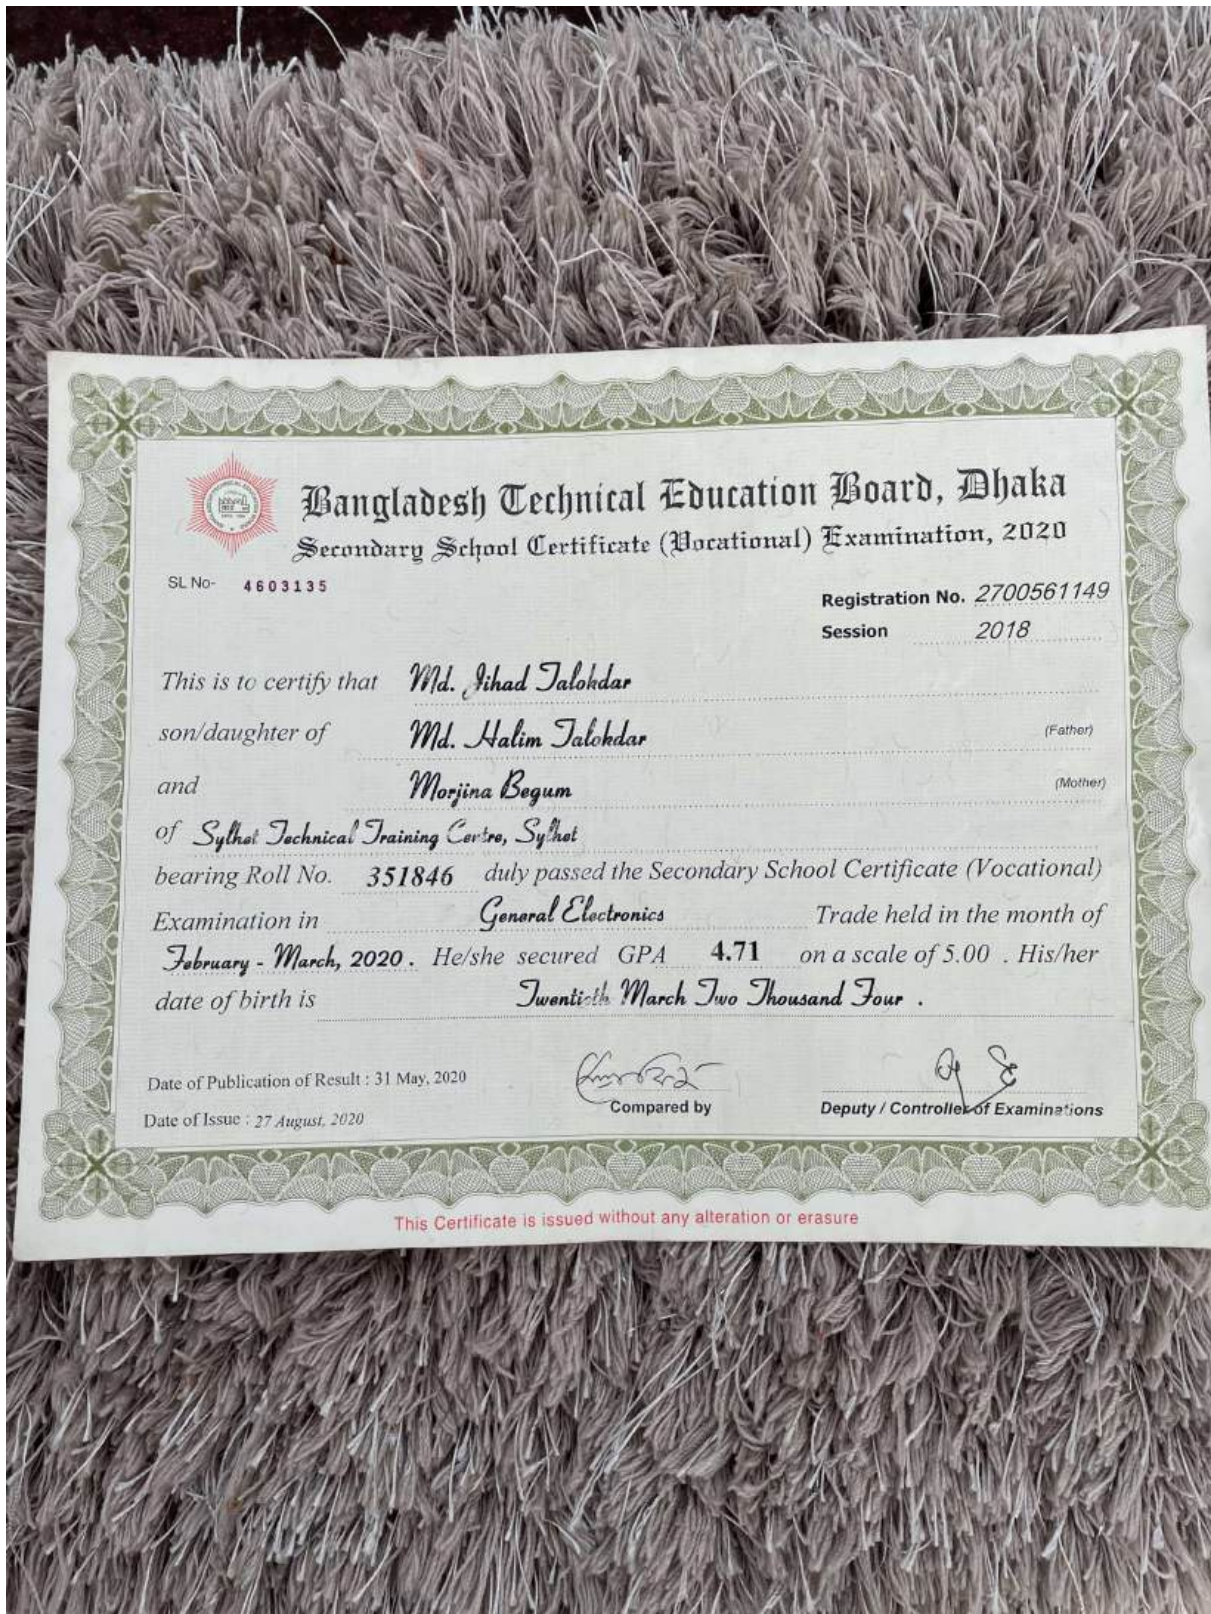 Bangladesh Technical Education Board, Dhaka
Secondary School Certificate (Vocational) Examination, 2020
SL No- 4603135
Registration No. 2700561149
Session 2018
This is to certify that Md. Jihad Talokdar
son/daughter of Md. Halim Talokdar (Father)
and Morjina Begum (Mother)
of Sylhet Technical Training Centre, Sylhet
bearing Roll No. 351846 duly passed the Secondary School Certificate (Vocational)
Examination in General Electronics Trade held in the month of
February - March, 2020. He/she secured GPA 4.71 on a scale of 5.00 . His/her
date of birth is Twentieth March Two Thousand Four .
Date of Publication of Result : 31 May, 2020
Compared by
Deputy / Controller of Examinations
Date of Issue : 27 August, 2020
This Certificate is issued without any alteration or erasure